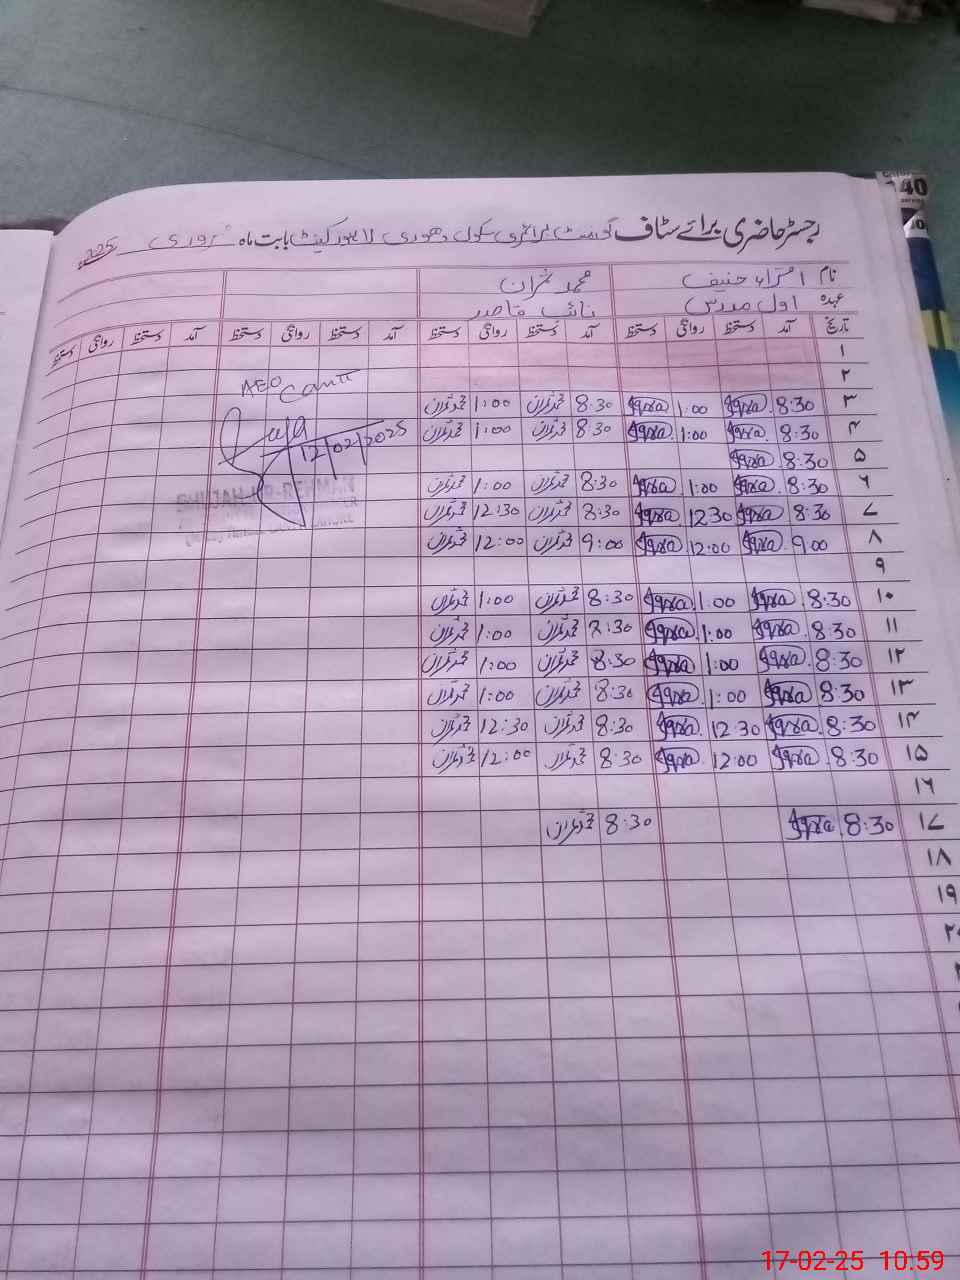 رجسٹر حاضری برائے سٹاف گورنمنٹ پرائمری سکول دھوری لاہور کینٹ بابت ماہ فروری 2025
نام اقراء حنیف محمد عمران
عہدہ اول مدرس نائب قاصد
تاریخ آمد دستخط روانگی دستخط آمد دستخط روانگی دستخط آمد دستخط روانگی دستخط آمد دستخط روانگی دستخط
۱
۲
AEO Cantt
۳ 8:30 Iqra 1:00 Iqra 8:30 محمد عمران 1:00 محمد عمران
۴ 8:30 Iqra 1:00 Iqra 8:30 محمد عمران 1:00 محمد عمران
12/02/2025
۵ 8:30 Iqra
۶ 8:30 Iqra 1:00 Iqra 8:30 محمد عمران 1:00 محمد عمران
۷ 8:30 Iqra 12:30 Iqra 8:30 محمد عمران 12:30 محمد عمران
۸ 9:00 Iqra 12:00 Iqra 9:00 محمد عمران 12:00 محمد عمران
۹
۱۰ 8:30 Iqra 1:00 Iqra 8:30 محمد عمران 1:00 محمد عمران
۱۱ 8:30 Iqra 1:00 Iqra 8:30 محمد عمران 1:00 محمد عمران
۱۲ 8:30 Iqra 1:00 Iqra 8:30 محمد عمران 1:00 محمد عمران
۱۳ 8:30 Iqra 1:00 Iqra 8:30 محمد عمران 1:00 محمد عمران
۱۴ 8:30 Iqra 12:30 Iqra 8:30 محمد عمران 12:30 محمد عمران
۱۵ 8:30 Iqra 12:00 Iqra 8:30 محمد عمران 12:00 محمد عمران
۱۶
۱۷ 8:30 Iqra 8:30 محمد عمران
۱۸
۱۹
17-02-25 10:59